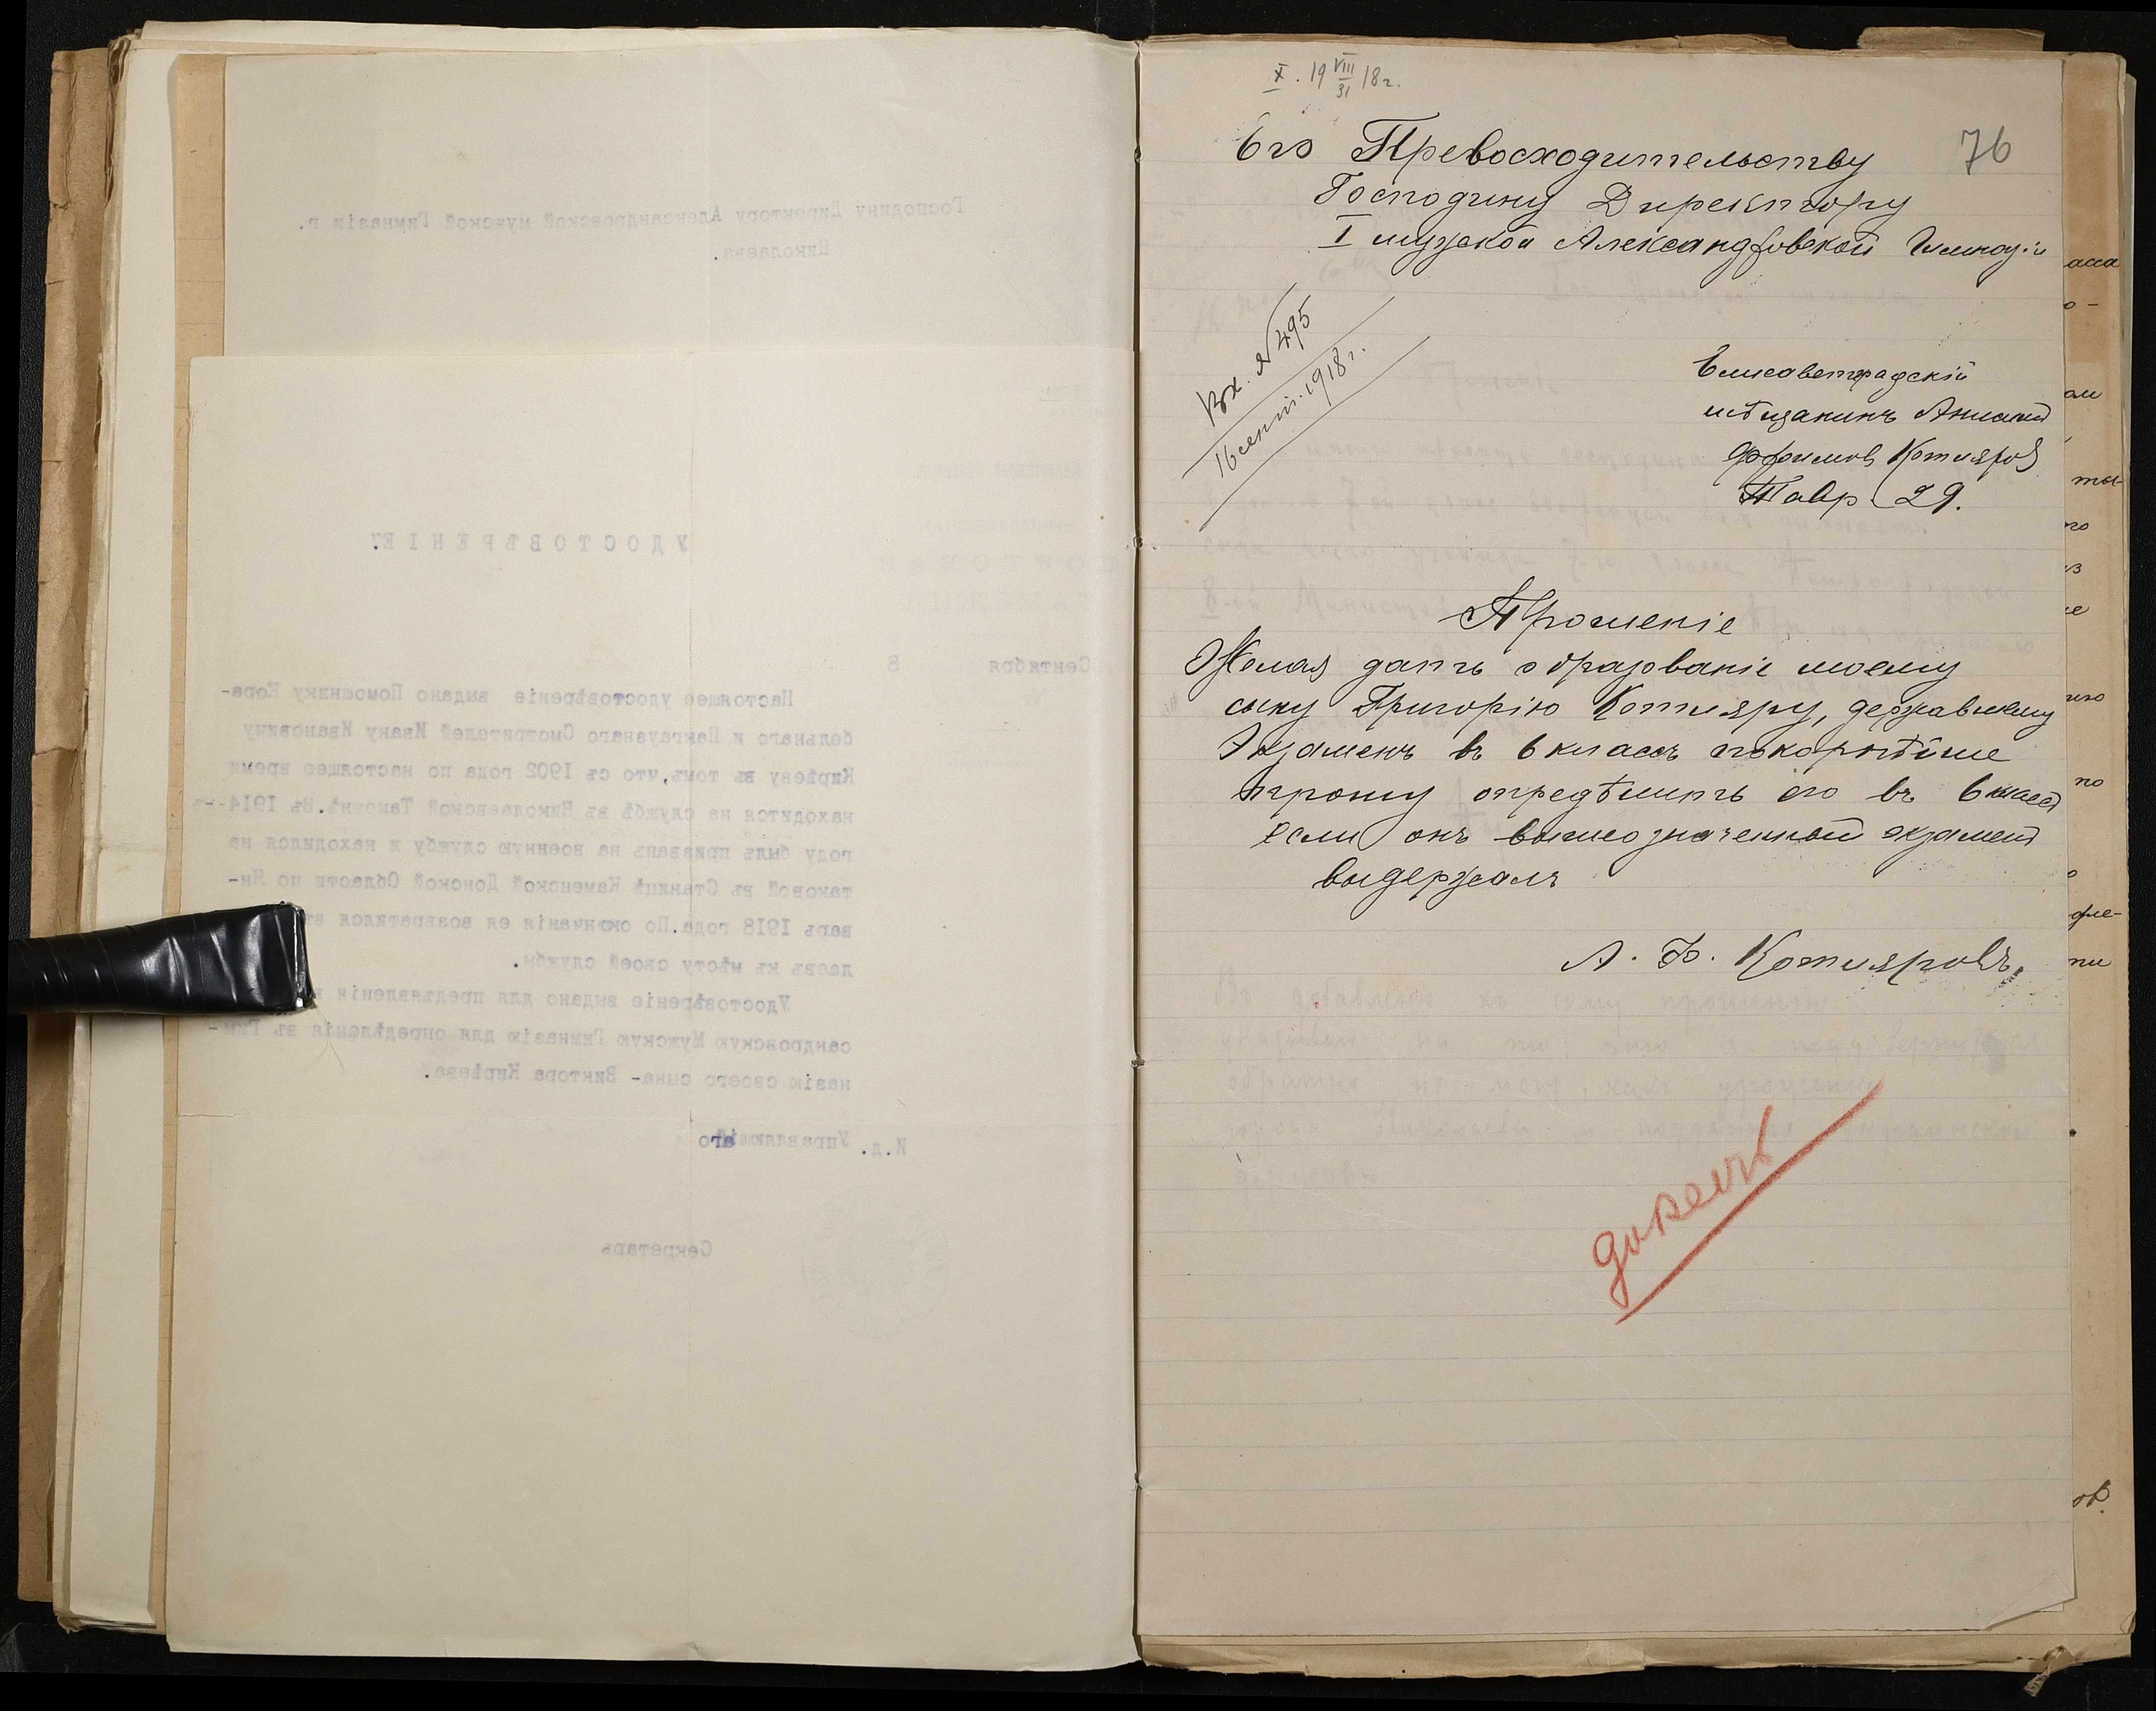 Господину Директору Александровской мужской Гимназіи г.
Николаева.
УДОСТОВѢРЕНІЕ.
Сентября 8
Настоящее удостовѣреніе выдано Помощнику Кора-
бельнаго и Пакгаузнаго Смотрителей Ивану Ивановичу
Кирѣеву въ томъ, что съ 1902 года по настоящее время
находится на службѣ въ Николаевской Таможнѣ. Въ 1914-
году былъ призванъ на военную службу и находился на
таковой въ Станицѣ Каменской Донской Области по Ян-
варь 1918 года. По окончанія ея возвратился въ
лаевъ къ мѣсту своей службы.
Удостовѣреніе выдано для предъявленія
сандровскую Мужскую Гимназію для опредѣленія въ Гим-
назію своего сына- Виктора Кирѣева.
И.д. Управляющаго
Секретарь
X. 19 VIII/31 18 г.
76
Его Превосходительству
Господину Директору
I мужской Александровской Гимназіи
Вх. № 495
16 сент. 1918 г.
Елисаветградскій
мѣщанинъ
Котляров
Тавр. 29.
Прошеніе
Желая дать образованіе моему
сыну Григорію Котляру, державшему
Экзаменъ въ 6 классъ покорнѣйше
прошу опредѣлить его въ 6 класс
если онъ вышеозначенный экзамен
выдержалъ
А. Ф. Котляровъ.